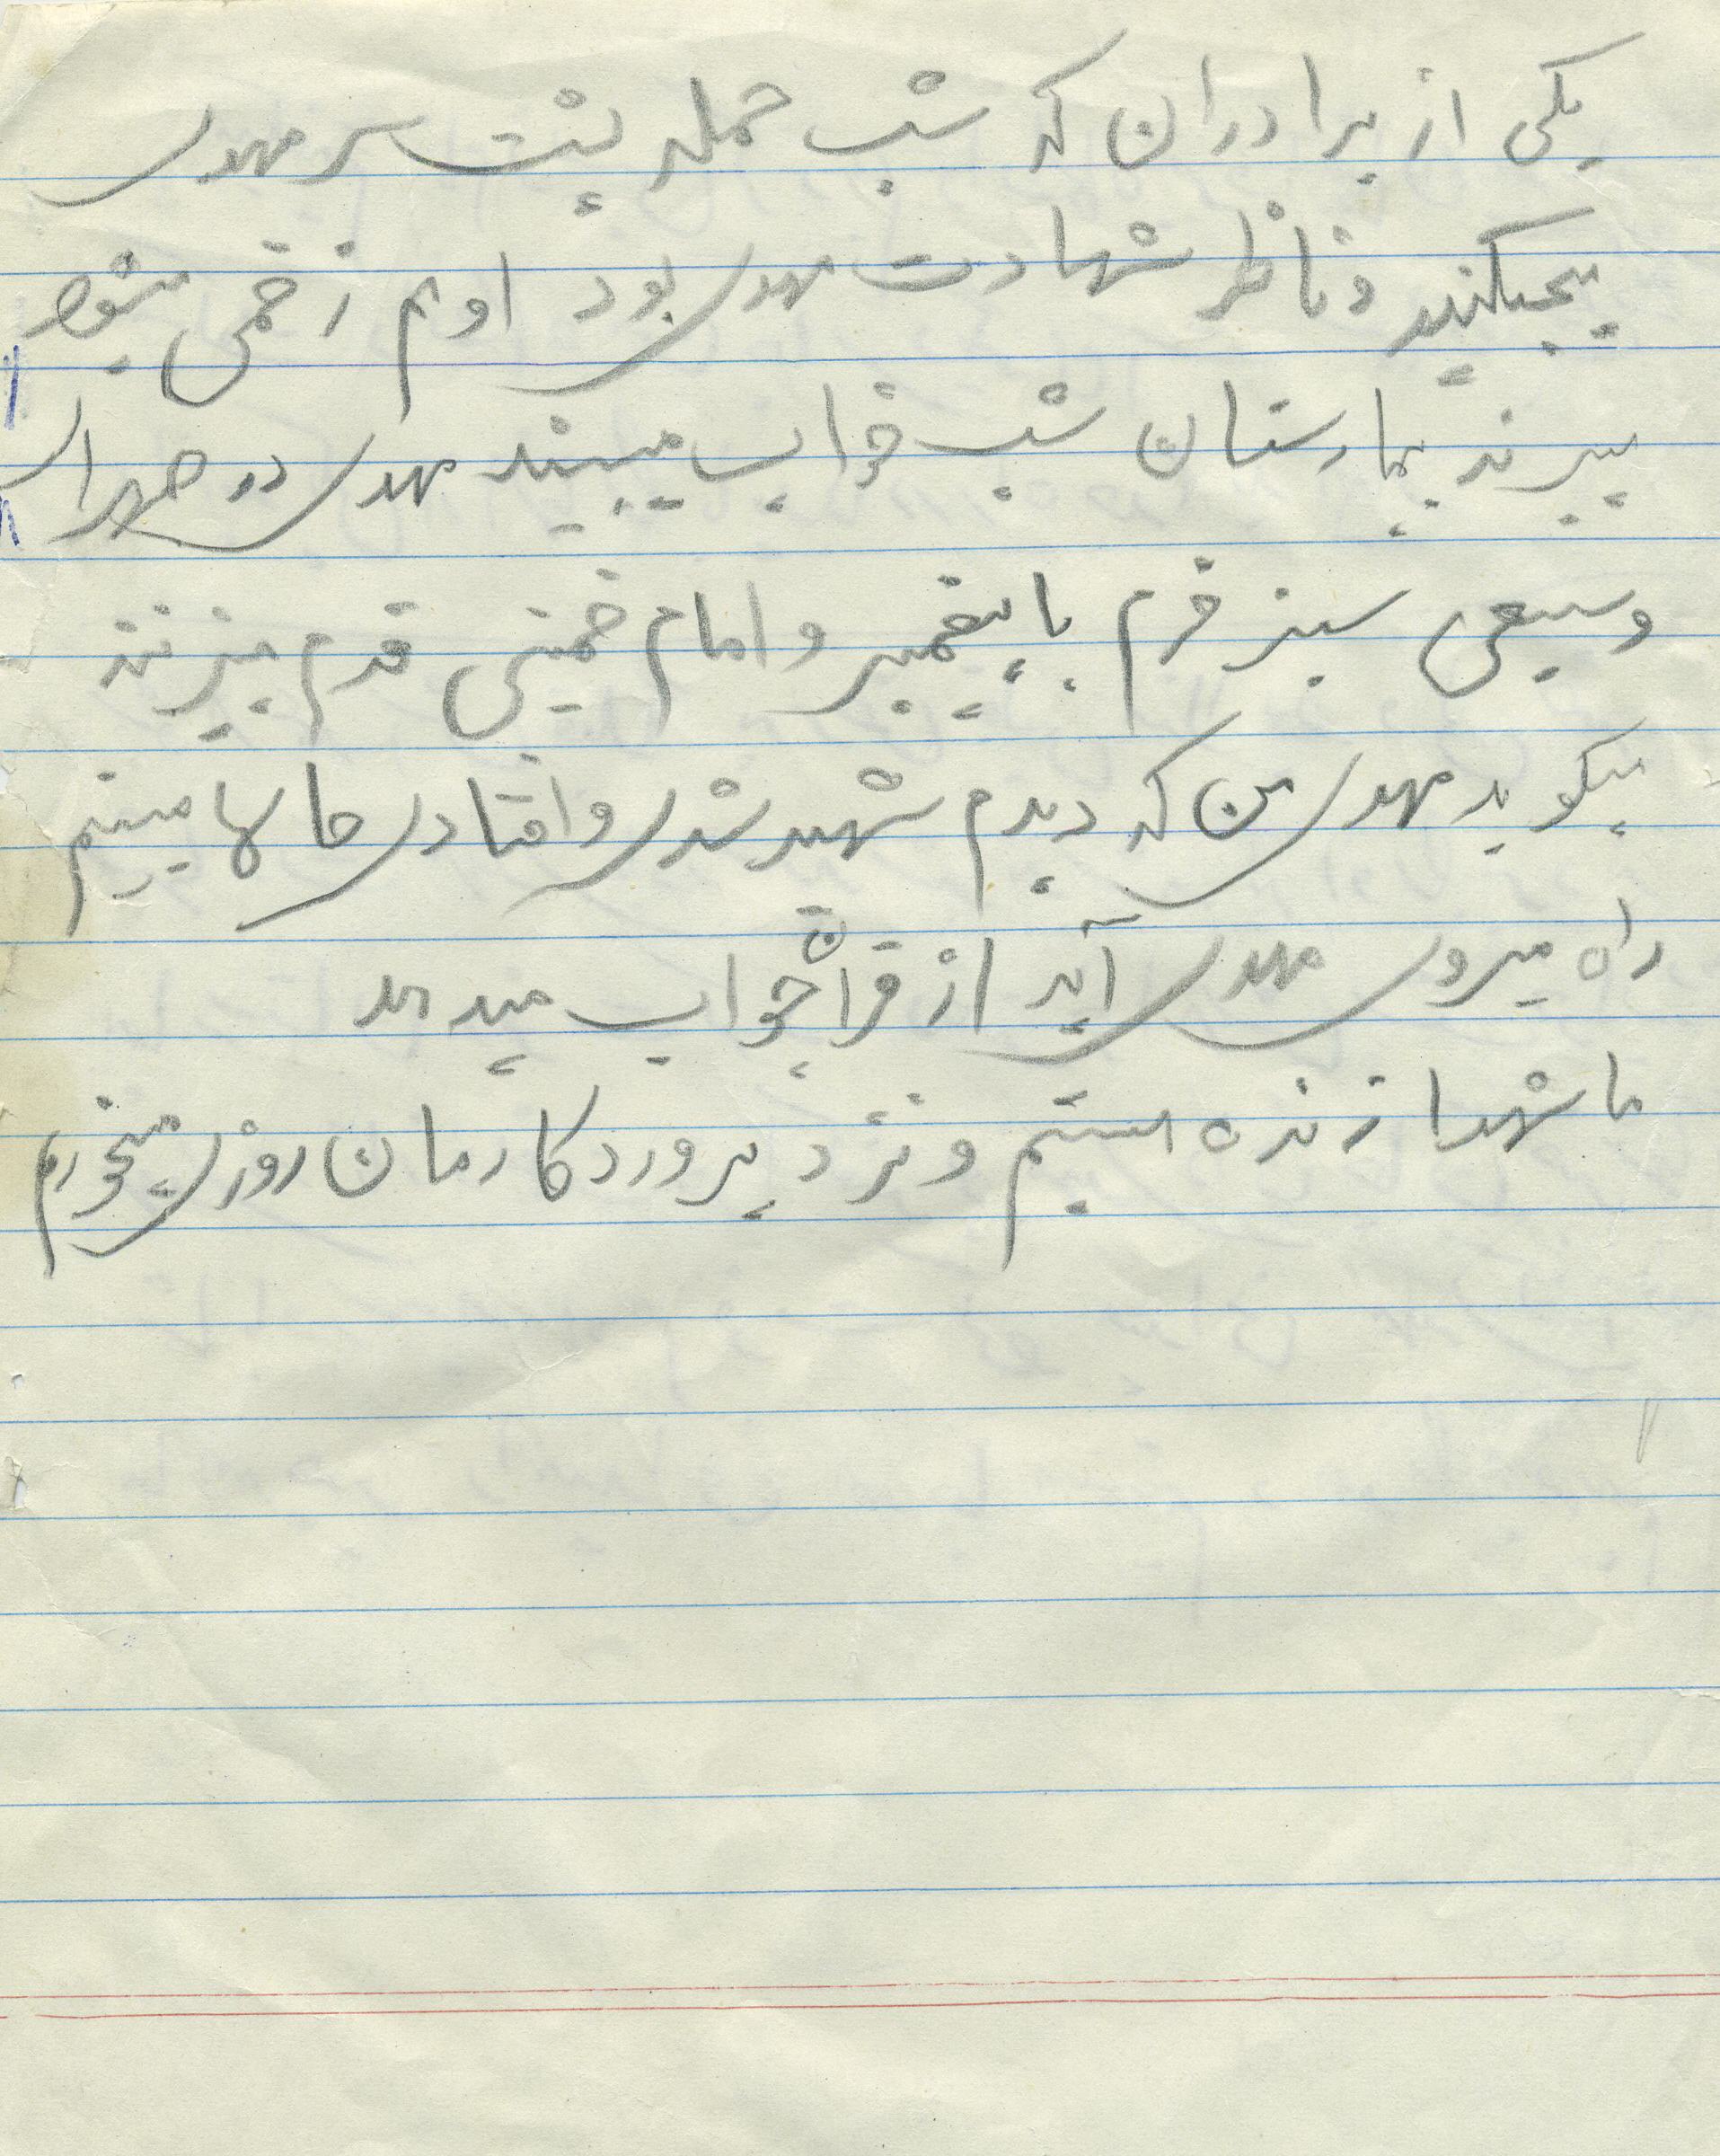 یکی از برادران که شب حمله پشت سر مهدی
میجنگید و ناظر شهادت مهدی بود او هم زخمی میشود
میبرند بیمارستان شب خواب میبیند مهدی در صحرای
وسیعی سبز خرم با پیغمبر و امام خمینی قدم میزنند
میگوید مهدی من که دیدم شهید شدی و افتادی حالا میبینم
راه میروی مهدی آیه از قرآن جواب میدهد
ما شهدا زنده هستیم و نزد پروردگارمان روزی میخوریم